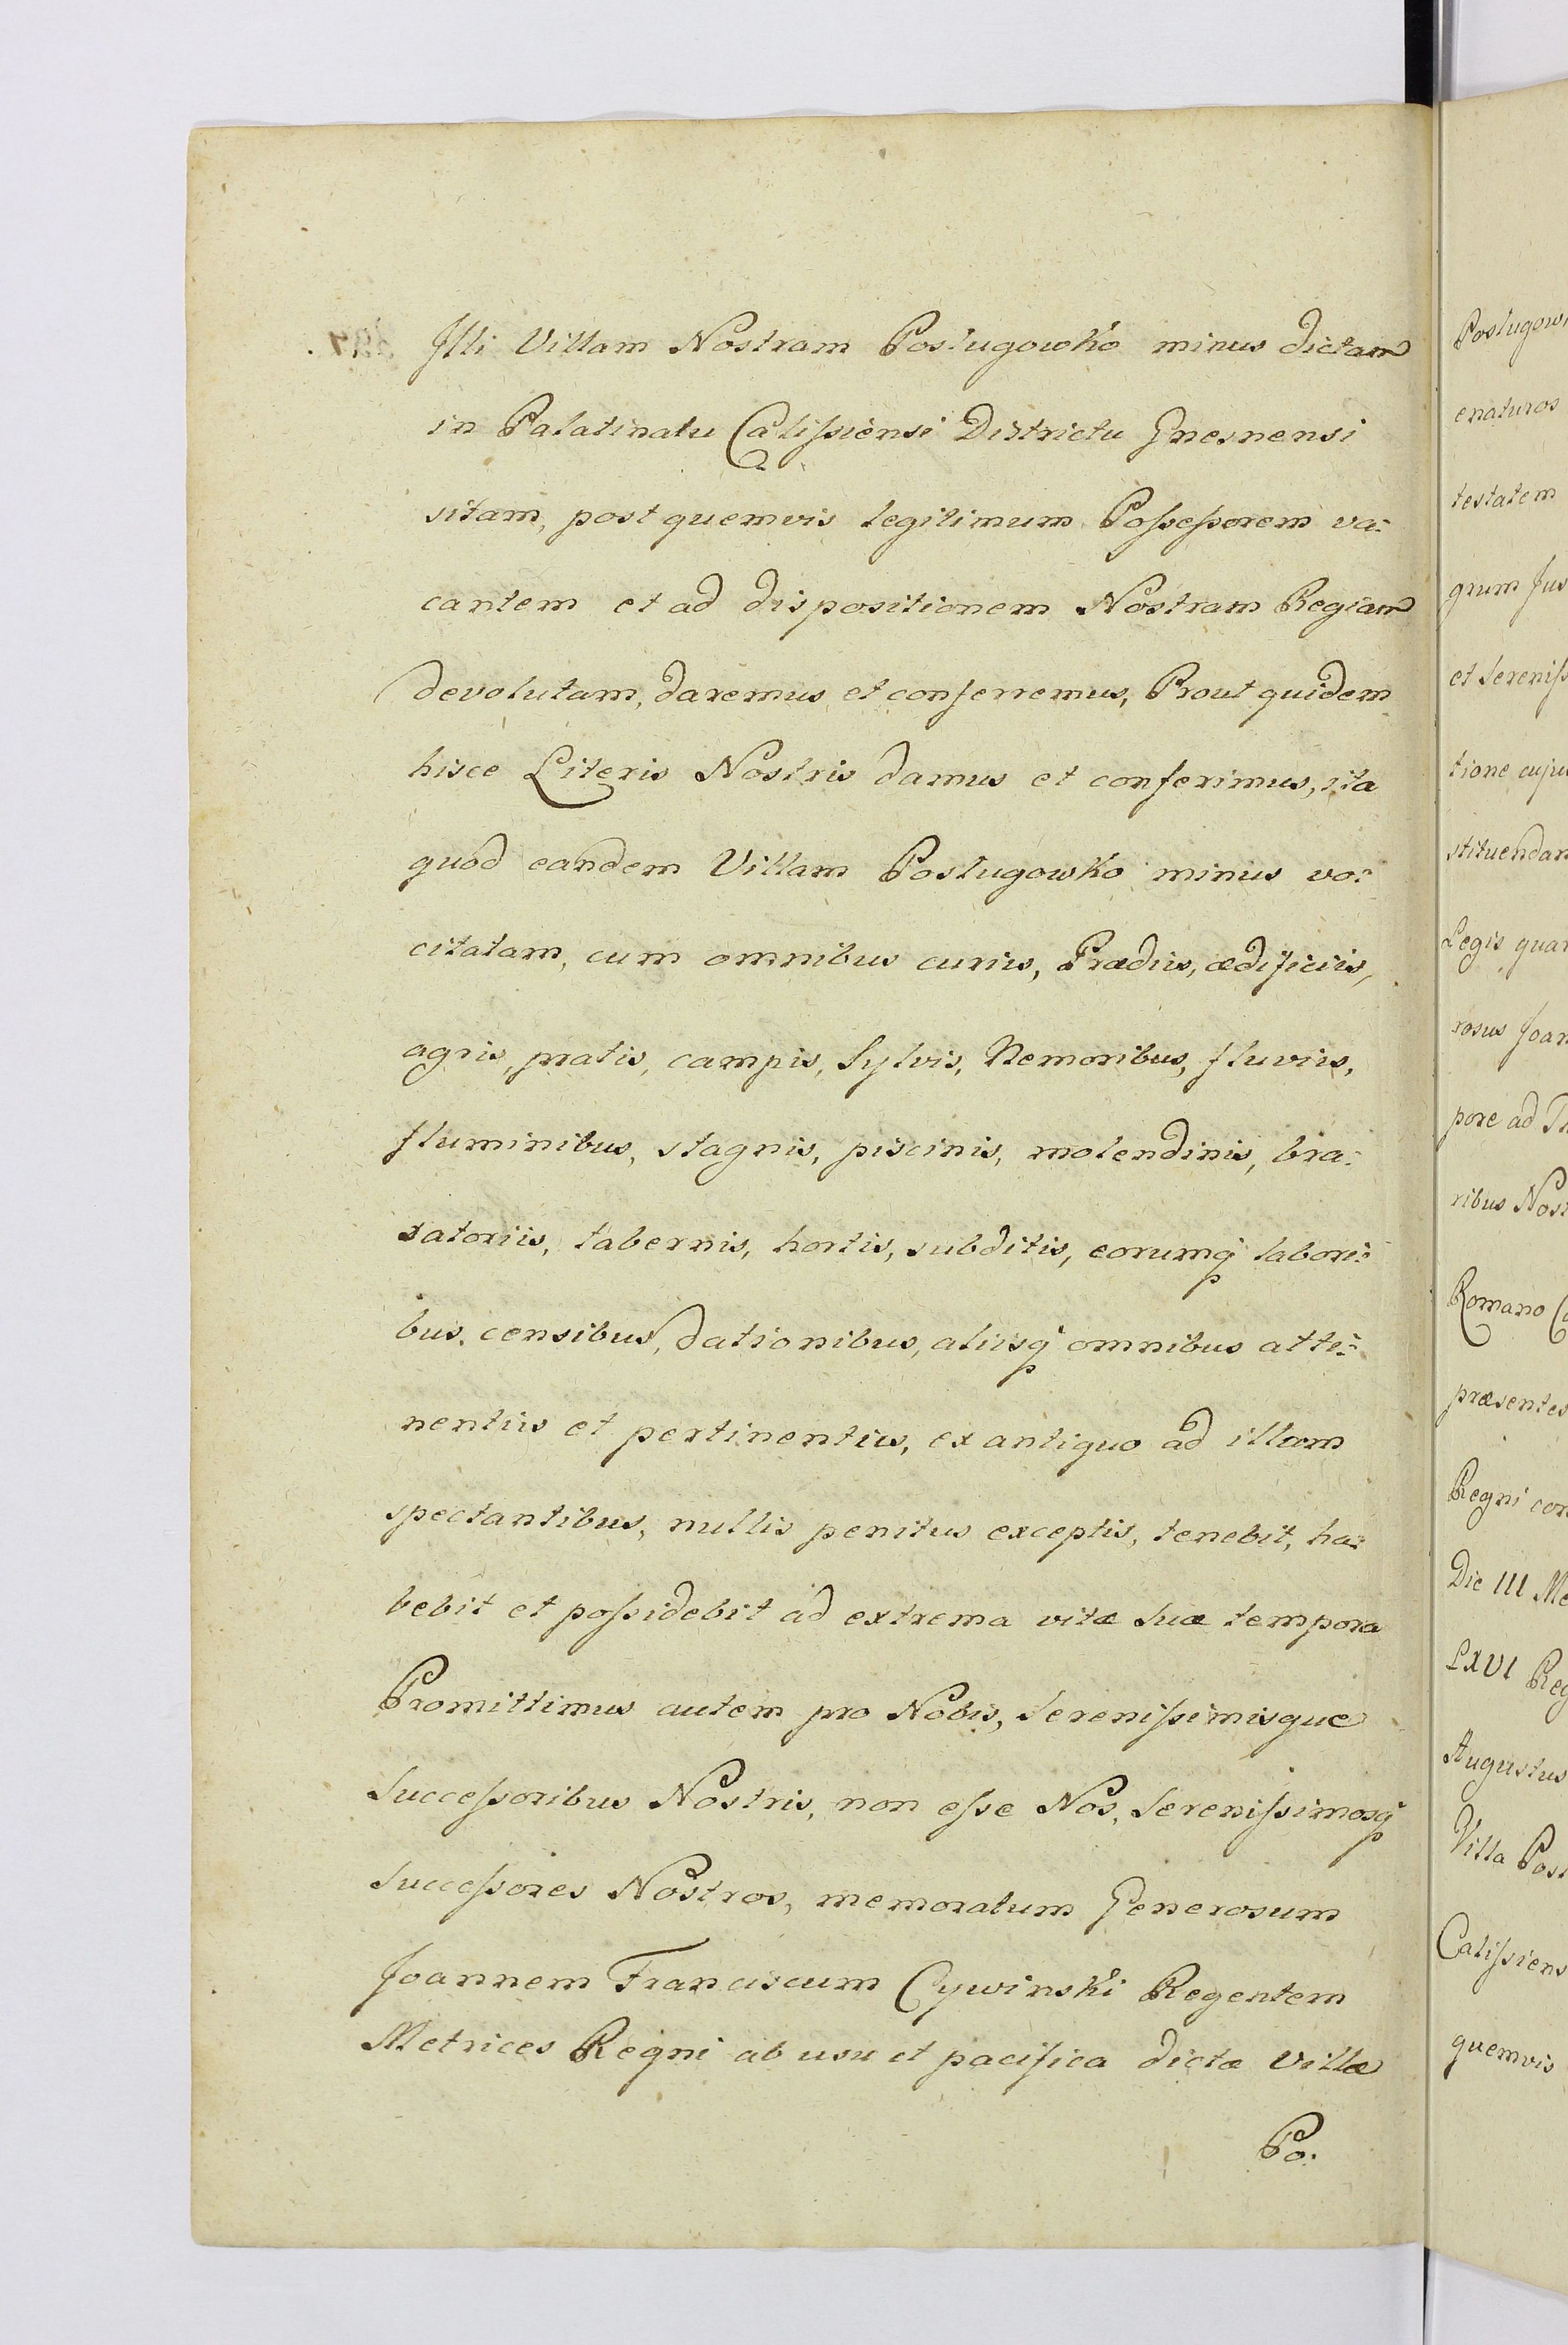 Illi Villam Nostram Posługowko minus dictam
in Palatinatu Calissiensi Districtu Gnesnensi
sitam, post quemvis legitimum Possessorem va-
cantem et ad dispositionem Nostram Regiam
devolutam, daremus et conferremus, Prout quidem
hisce Literis Nostris damus et conferimus, ita
quod eandem Villam Posługowko minus vo-
citatam, cum omnibus curiis, Prædiis, ædificiis,
agris, pratis, campis, Sylvis, Nemoribus, fluviis,
fluminibus, stagnis, piscinis, molendinis, bra-
xatoriis, tabernis, hortis, subditis, eorumq labori-
bus, censibus, dationibus, aliisq omnibus atti-
nentiis et pertinentiis, ex antiquo ad illam
spectantibus, nullis penitus exceptis, tenebit, ha-
bebit et possidebit ad extrema vitæ suæ tempora
Promittimus autem pro Nobis, Serenissimisque
Successoribus Nostris, non esse Nos, Serenissimosq
Successores Nostros, memoratum Generosum
Joannem Franciscum Cywinski Regentem
Metrices Regni ab usu et pacifica dictæ Villæ
Po-
Posługow
enaturos
testatem
grum Jus
et Sereniss
tione cuju
stituendam
Legis quar
rosus Joan
pore ad
ribus Nost
Romano
præsentes
Regni con
Die III Me
LXVI Reg
Augustus
Villa Post
Calissiens
quemvis